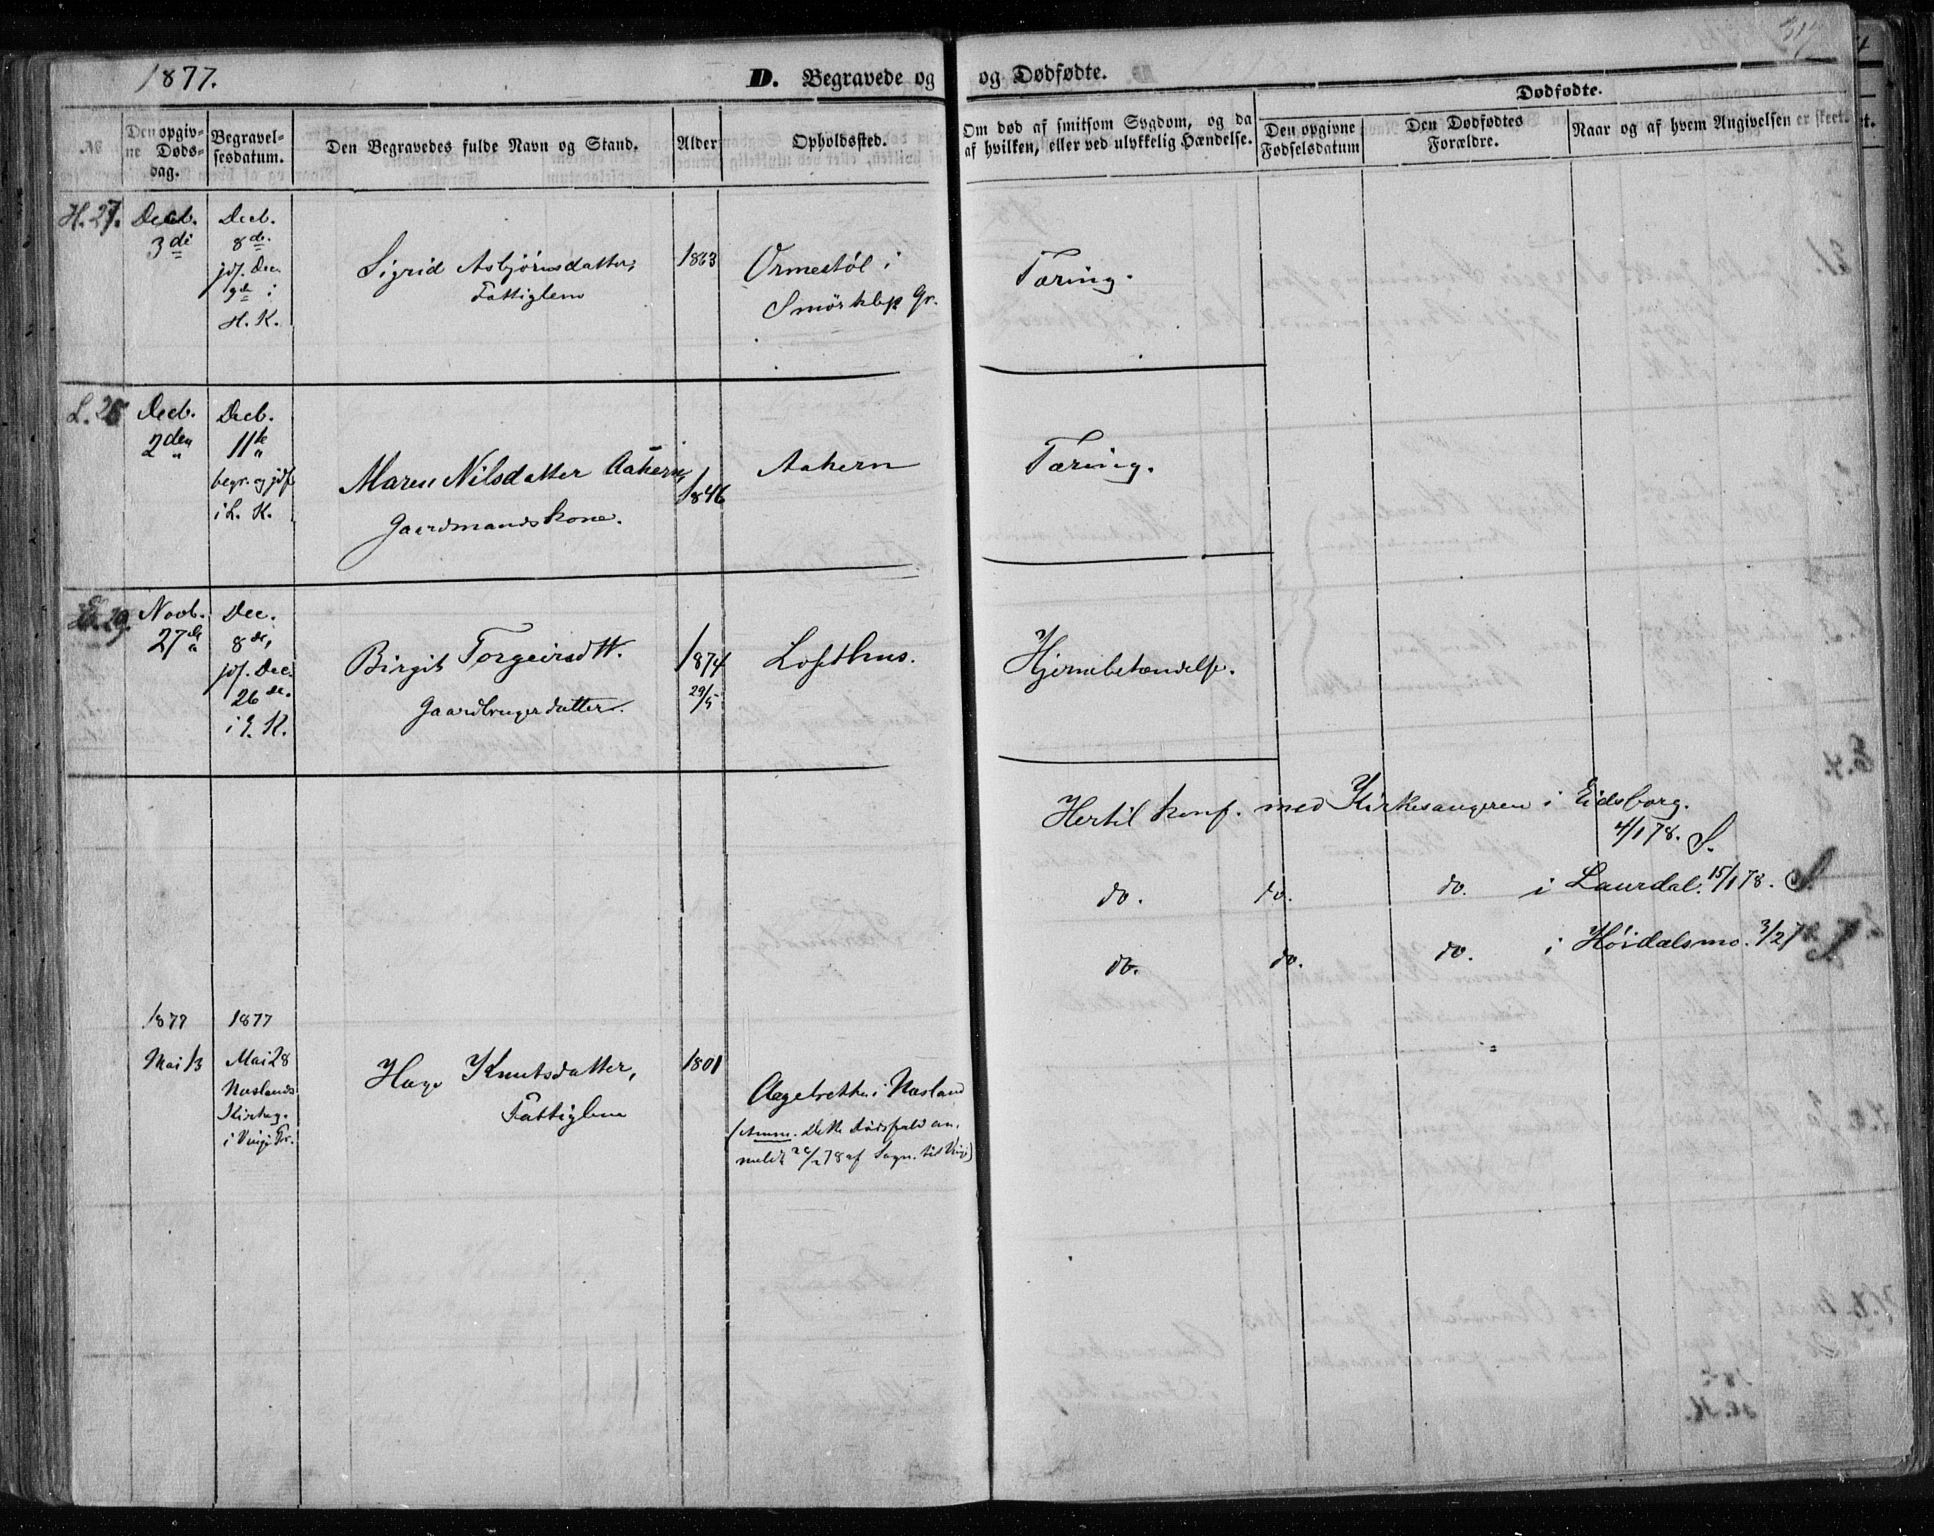 1877.
D. Begravede og
og Dødfødte.
No.
Den opgiv-
ne Døds-
dag.
Begravel-
sesdatum.
Den Begravedes fulde Navn og Stand.
Alder
Opholdssted.
Om død af smitsom Sygdom, og da
af hvilken, eller ved ulykkelig Hændelse.
Dødfødte.
Den opgivne
Fødselsdatum
Den Dødfødtes
Forældre.
Naar og af hvem Angivelsen er skeet.
H. 27.
Decb.
3di
Decb.
8de.
jdf. Dec
9de i
H. K.
Sigrid Asbjørnsdatter,
Fattiglem
1863
Ormestøl i
Smørklep Gr.
Tæring.
L. 26
Decb.
2den
Decb.
11te
begr. og jdf.
i L. K.
Maren Nilsdatter Aakern,
Gaardmandskone.
1846
Aakern
Tæring.
E. 29.
Novb.
27de
Dec.
8de,
jdf. Dec.
26de.
i E. K.
Birgit Torgeirsdtt.
Gaardbrugerdatter.
1874
29/5
Lofthus.
Hjernebetændelse.
Hertil konf. med Kirkesangeren i Eidsborg.
4/1 78. S.
do. do. do. i Laurdal. 15/1 78. S.
do. do. do. i Høidalsmo. 3/2 78 S.
1877
Mai 13
1877
Mai 28
Næslands
Kirkeg.
i Vinje Pr.
Hæge Knutsdatter,
Fattiglem
1801
Aagetveitke i Næsland
(Anm. Dette Dødsfald an-
meldt 20/2 78 af Sogn. til Vinje)